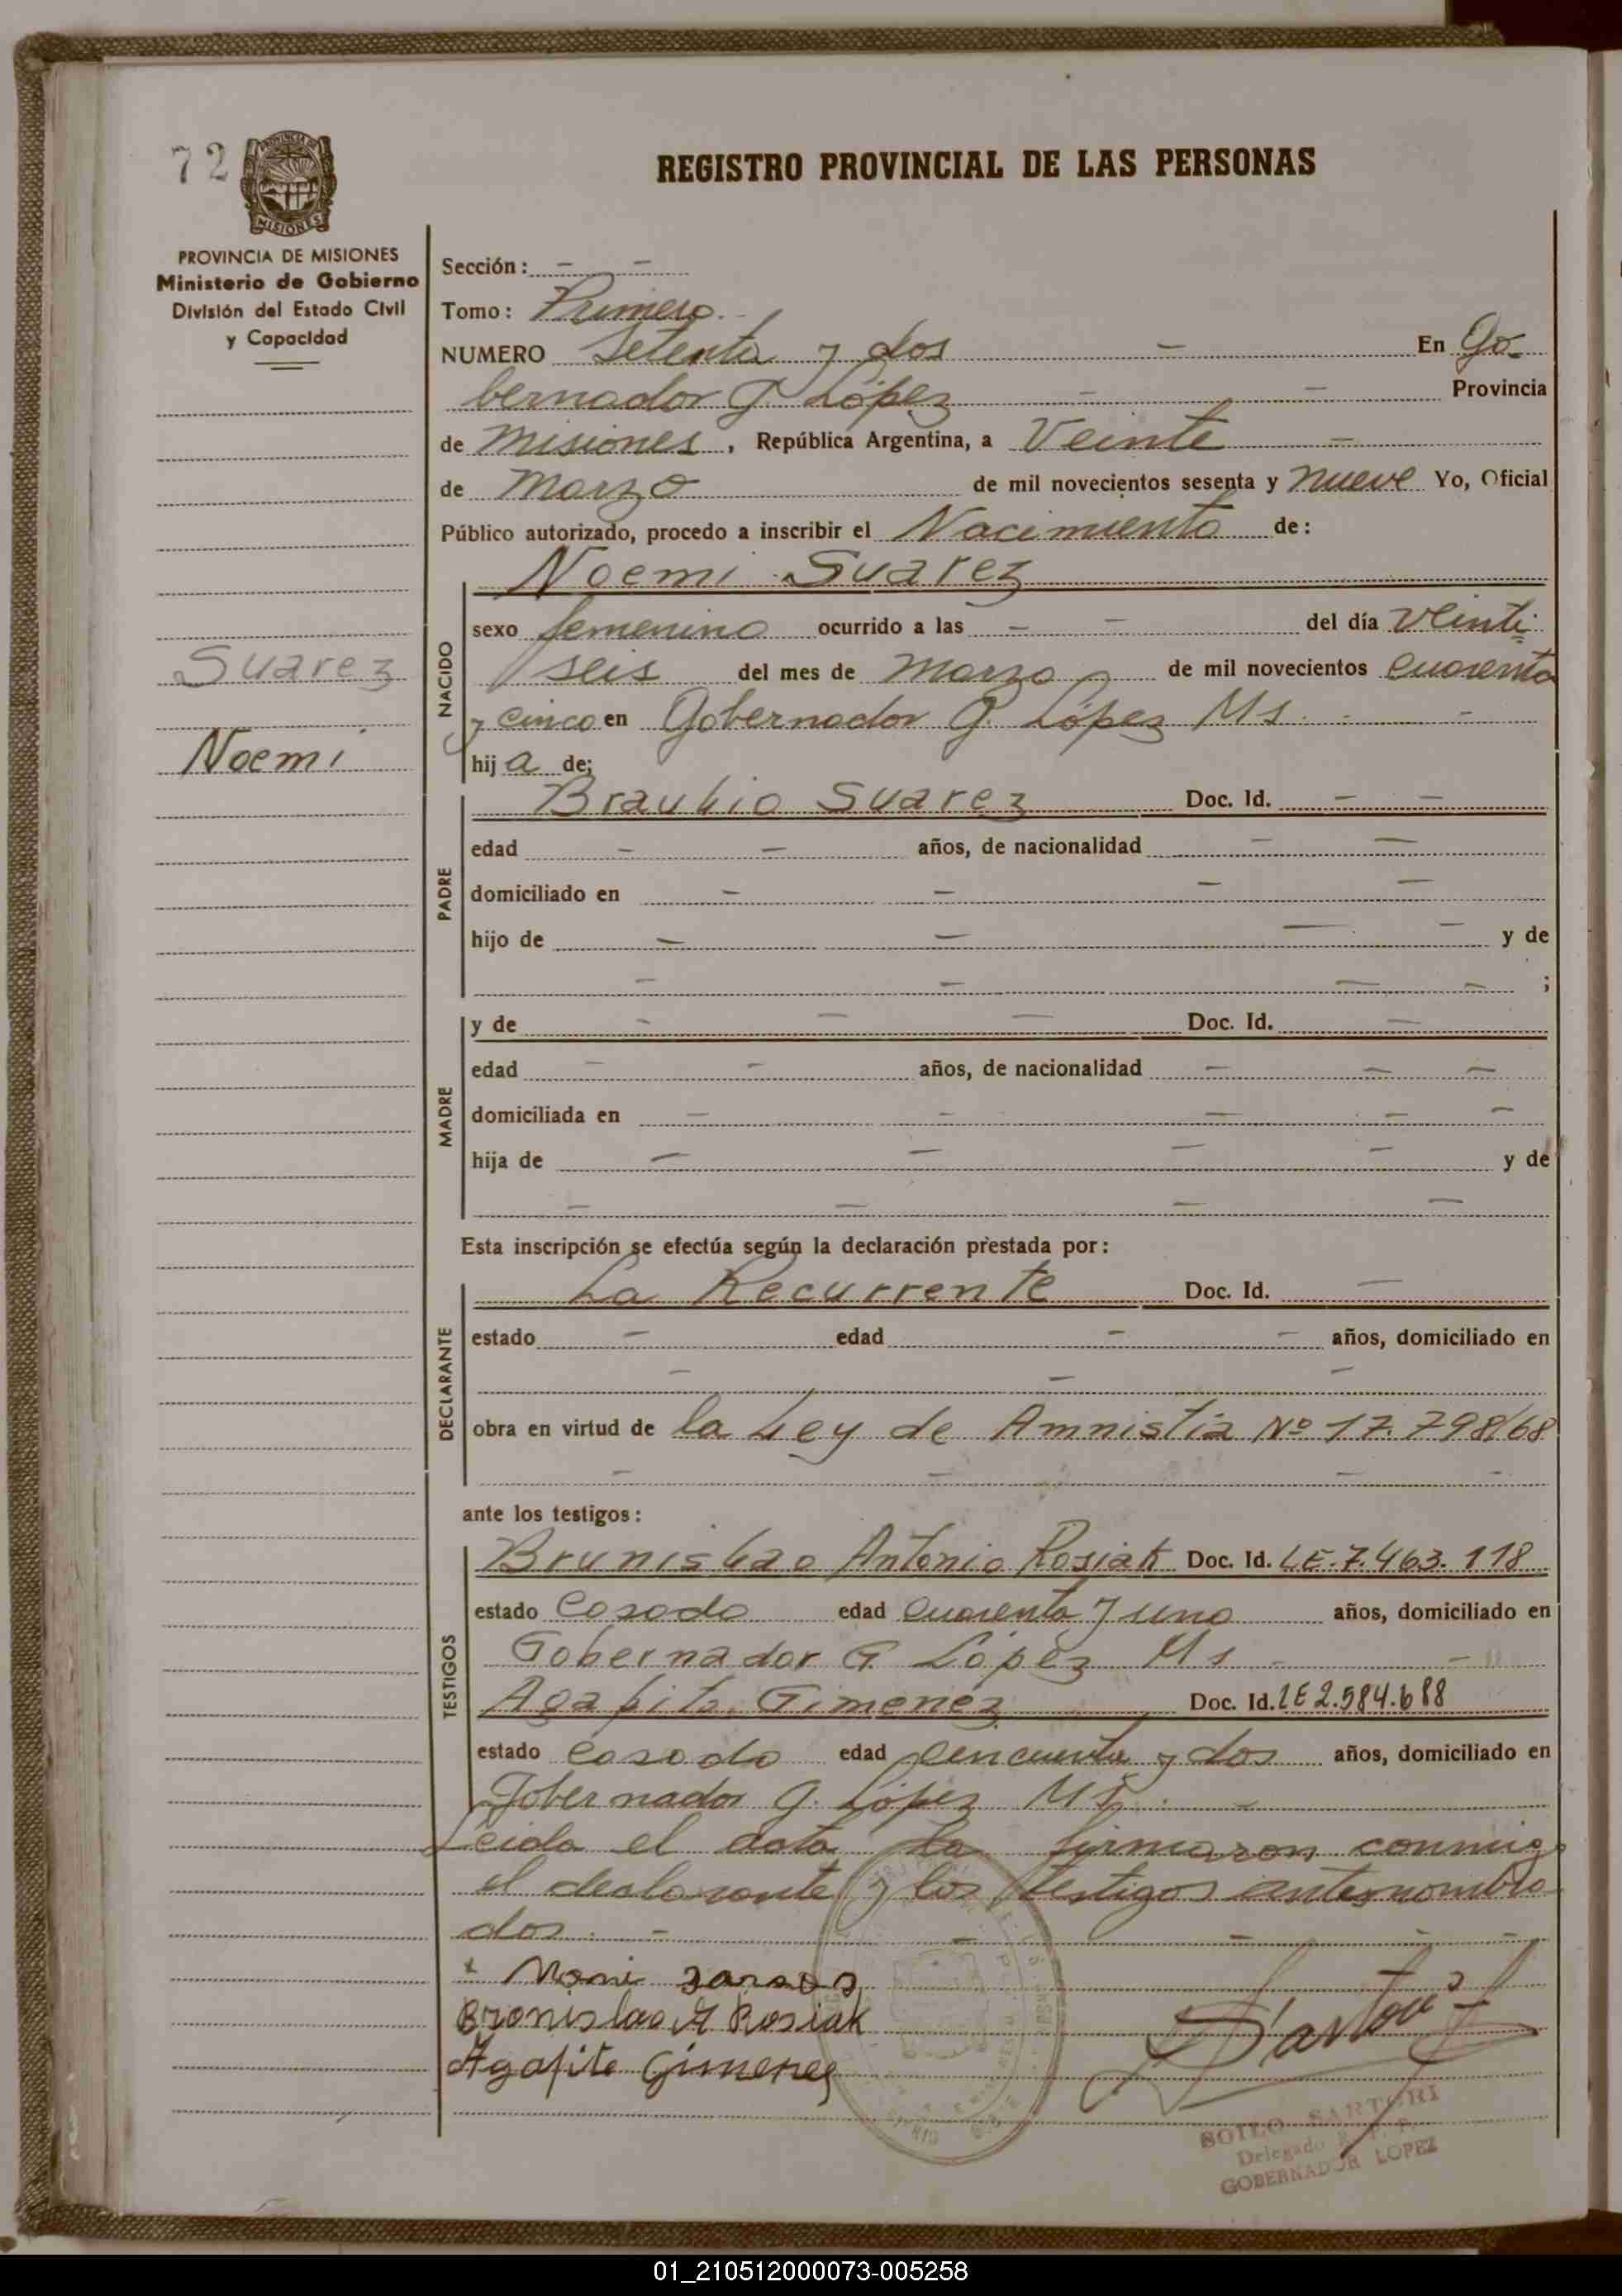 72
REGISTRO PROVINCIAL DE LAS PERSONAS
PROVINCIA DE MISIONES
Ministerio de Gobierno
División del Estado Civil
y Capacidad
Suarez
Noemi
Sección: - -
Tomo: Primero.
NUMERO Setenta y dos - En Go-
bernador G. López - - Provincia
de Misiones, República Argentina, a Veinte -
de Marzo de mil novecientos sesenta y nueve Yo, Oficial
Público autorizado, procedo a inscribir el Nacimiento de:
Noemi Suarez
NACIDO
sexo femenino ocurrido a las - - del día Veinti
seis del mes de Marzo de mil novecientos cuarenta
y cinco en Gobernador G. López Ms. - -
hija de;
PADRE
Braulio Suarez Doc. Id. - -
edad - - años, de nacionalidad - -
domiciliado en - - - -
hijo de - - - - y de
- - - - ;
MADRE
y de - - - Doc. Id. -
edad - - años, de nacionalidad - - -
domiciliada en - - - - -
hija de - - - - y de
- - - -
Esta inscripción se efectúa según la declaración prestada por:
DECLARANTE
La Recurrente Doc. Id. -
estado - edad - - años, domiciliado en
- - -
obra en virtud de la Ley de Amnistia Nº 17.798/68
- - - -
ante los testigos:
TESTIGOS
Brunislao Antonio Rosiak Doc. Id. LE.7.463.118
estado Casado edad cuarenta y uno años, domiciliado en
Gobernador G. López Ms - -
Agapito Gimenez Doc. Id. LE 2.584.688
estado Casado edad cincuenta y dos años, domiciliado en
Gobernador G. López Ms. -
Leida el acta la firmaron conmigo
el declarante y los testigos antesnombra
dos. - - - -
Bronislao A Rosiak
Agapito Gimenez
SOILO SARTORI
Delegado R. P. P.
GOBERNADOR LOPEZ
01_210512000073-005258